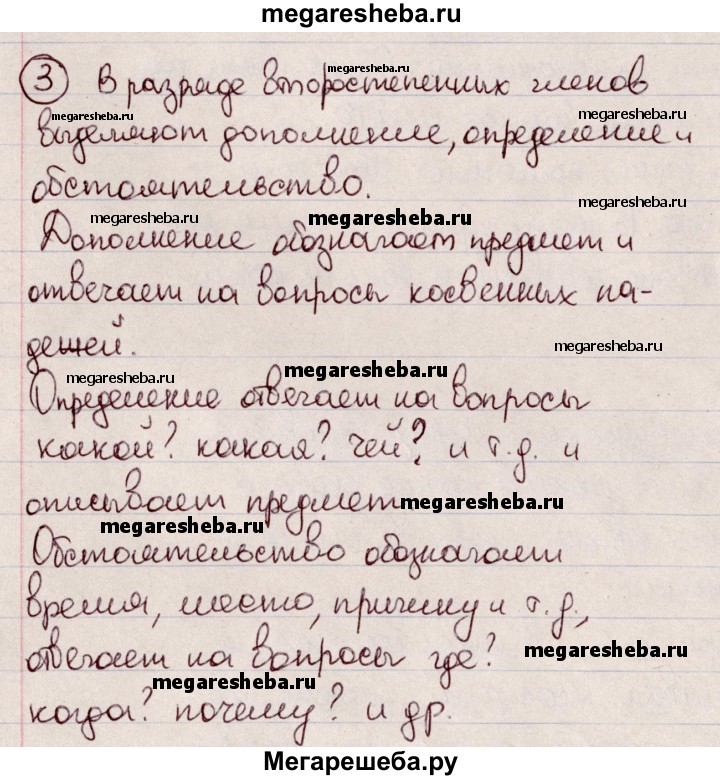 megaresheba.ru
③ В разряде второстепенных членов
megaresheba.ru
megaresheba.ru
megaresheba.ru
выделяют дополнение, определение и
обстоятельство.
megaresheba.ru
megaresheba.ru
megaresheba.ru
Дополнение обозначает предмет и
отвечает на вопросы косвенных па-
дежей.
megaresheba.ru
megaresheba.ru
megaresheba.ru
Определение отвечает на вопросы
какой? какая? чей? и т.д. и
описывает предмет
megaresheba.ru
megaresheba.ru
Обстоятельство обозначает
время, место, причину и т.д.,
отвечает на вопросы где?
megaresheba.ru
megaresheba.ru
когда? почему? и др.
Мегарешеба.ру